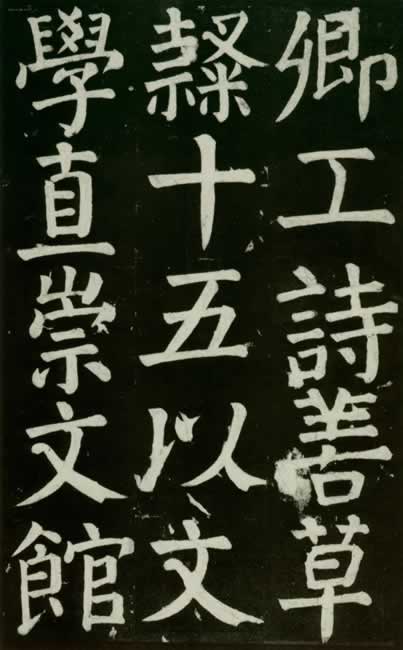 卿工詩善草
隸十五以文
學直崇文館